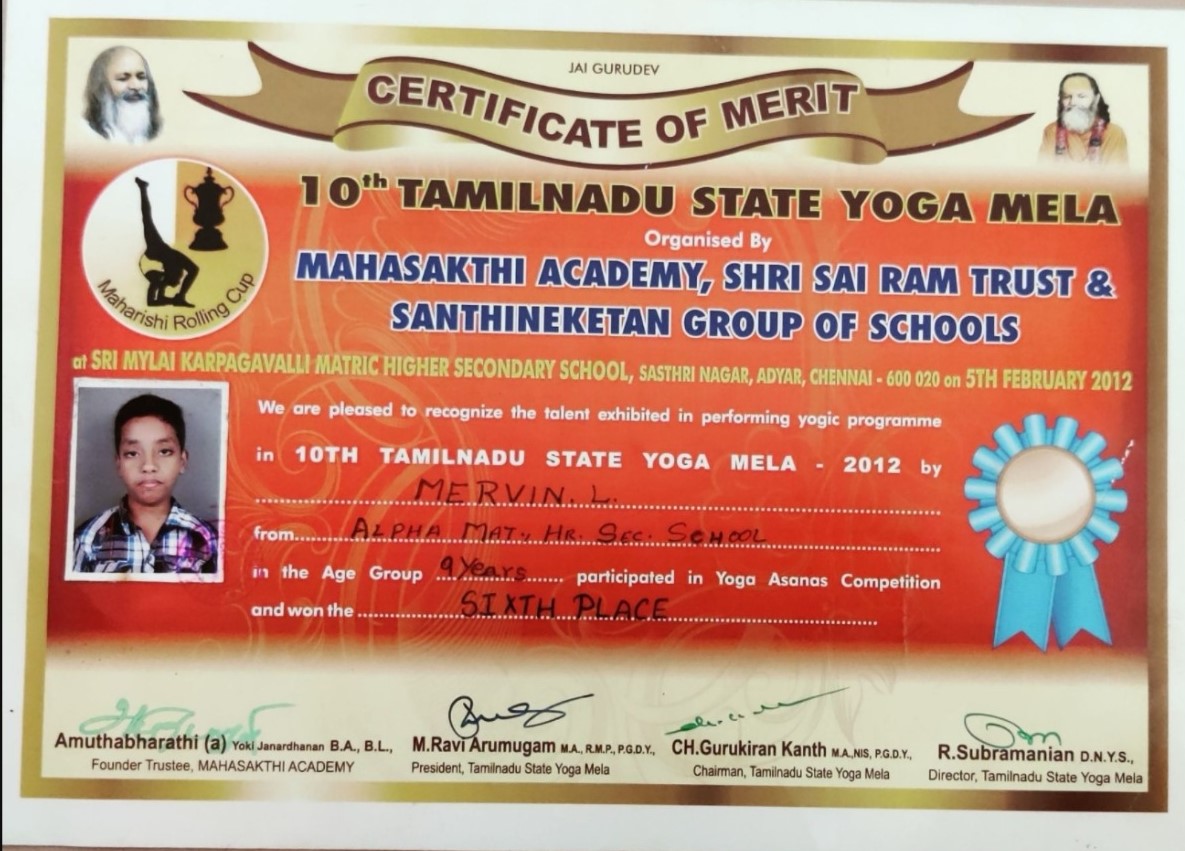 JAI GURUDEV
CERTIFICATE OF MERIT
10th TAMILNADU STATE YOGA MELA
Organised By
MAHASAKTHI ACADEMY, SHRI SAI RAM TRUST &
SANTHINEKETAN GROUP OF SCHOOLS
Maharishi Rolling Cup
at SRI MYLAI KARPAGAVALLI MATRIC HIGHER SECONDARY SCHOOL, SASTHRI NAGAR, ADYAR, CHENNAI - 600 020 on 5TH FEBRUARY 2012
We are pleased to recognize the talent exhibited in performing yogic programme
in 10TH TAMILNADU STATE YOGA MELA - 2012 by
MERVIN. L.
from ALPHA MAT., HR. SEC. SCHOOL
in the Age Group 9 Years participated in Yoga Asanas Competition
and won the SIXTH PLACE
Amuthabharathi (a) Yoki Janardhanan B.A., B.L.,
Founder Trustee, MAHASAKTHI ACADEMY
M.Ravi Arumugam M.A., R.M.P., P.G.D.Y.,
President, Tamilnadu State Yoga Mela
CH.Gurukiran Kanth M.A.,NIS, P.G.D.Y.,
Chairman, Tamilnadu State Yoga Mela
R.Subramanian D.N.Y.S.,
Director, Tamilnadu State Yoga Mela